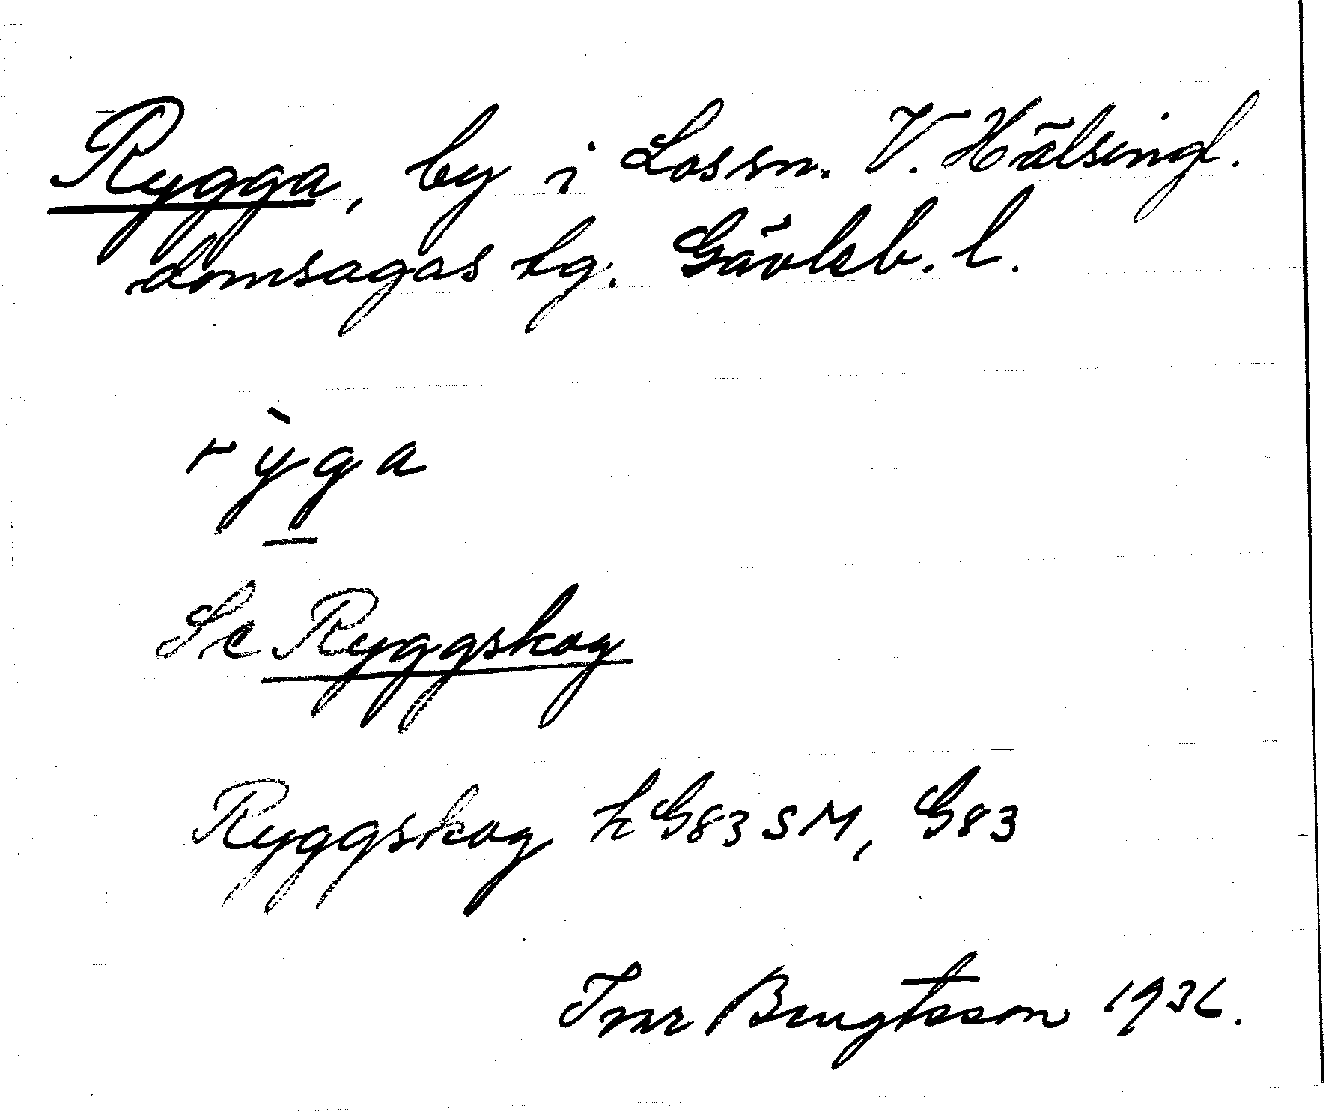 Rygga, by i Los sn. V. Hälsingl.
domsagas tg. Gävleb. l.
rỳga
Se Ryggskog
Ryggskog k G83 SM, G83
Ivar Bengtsson 1936.